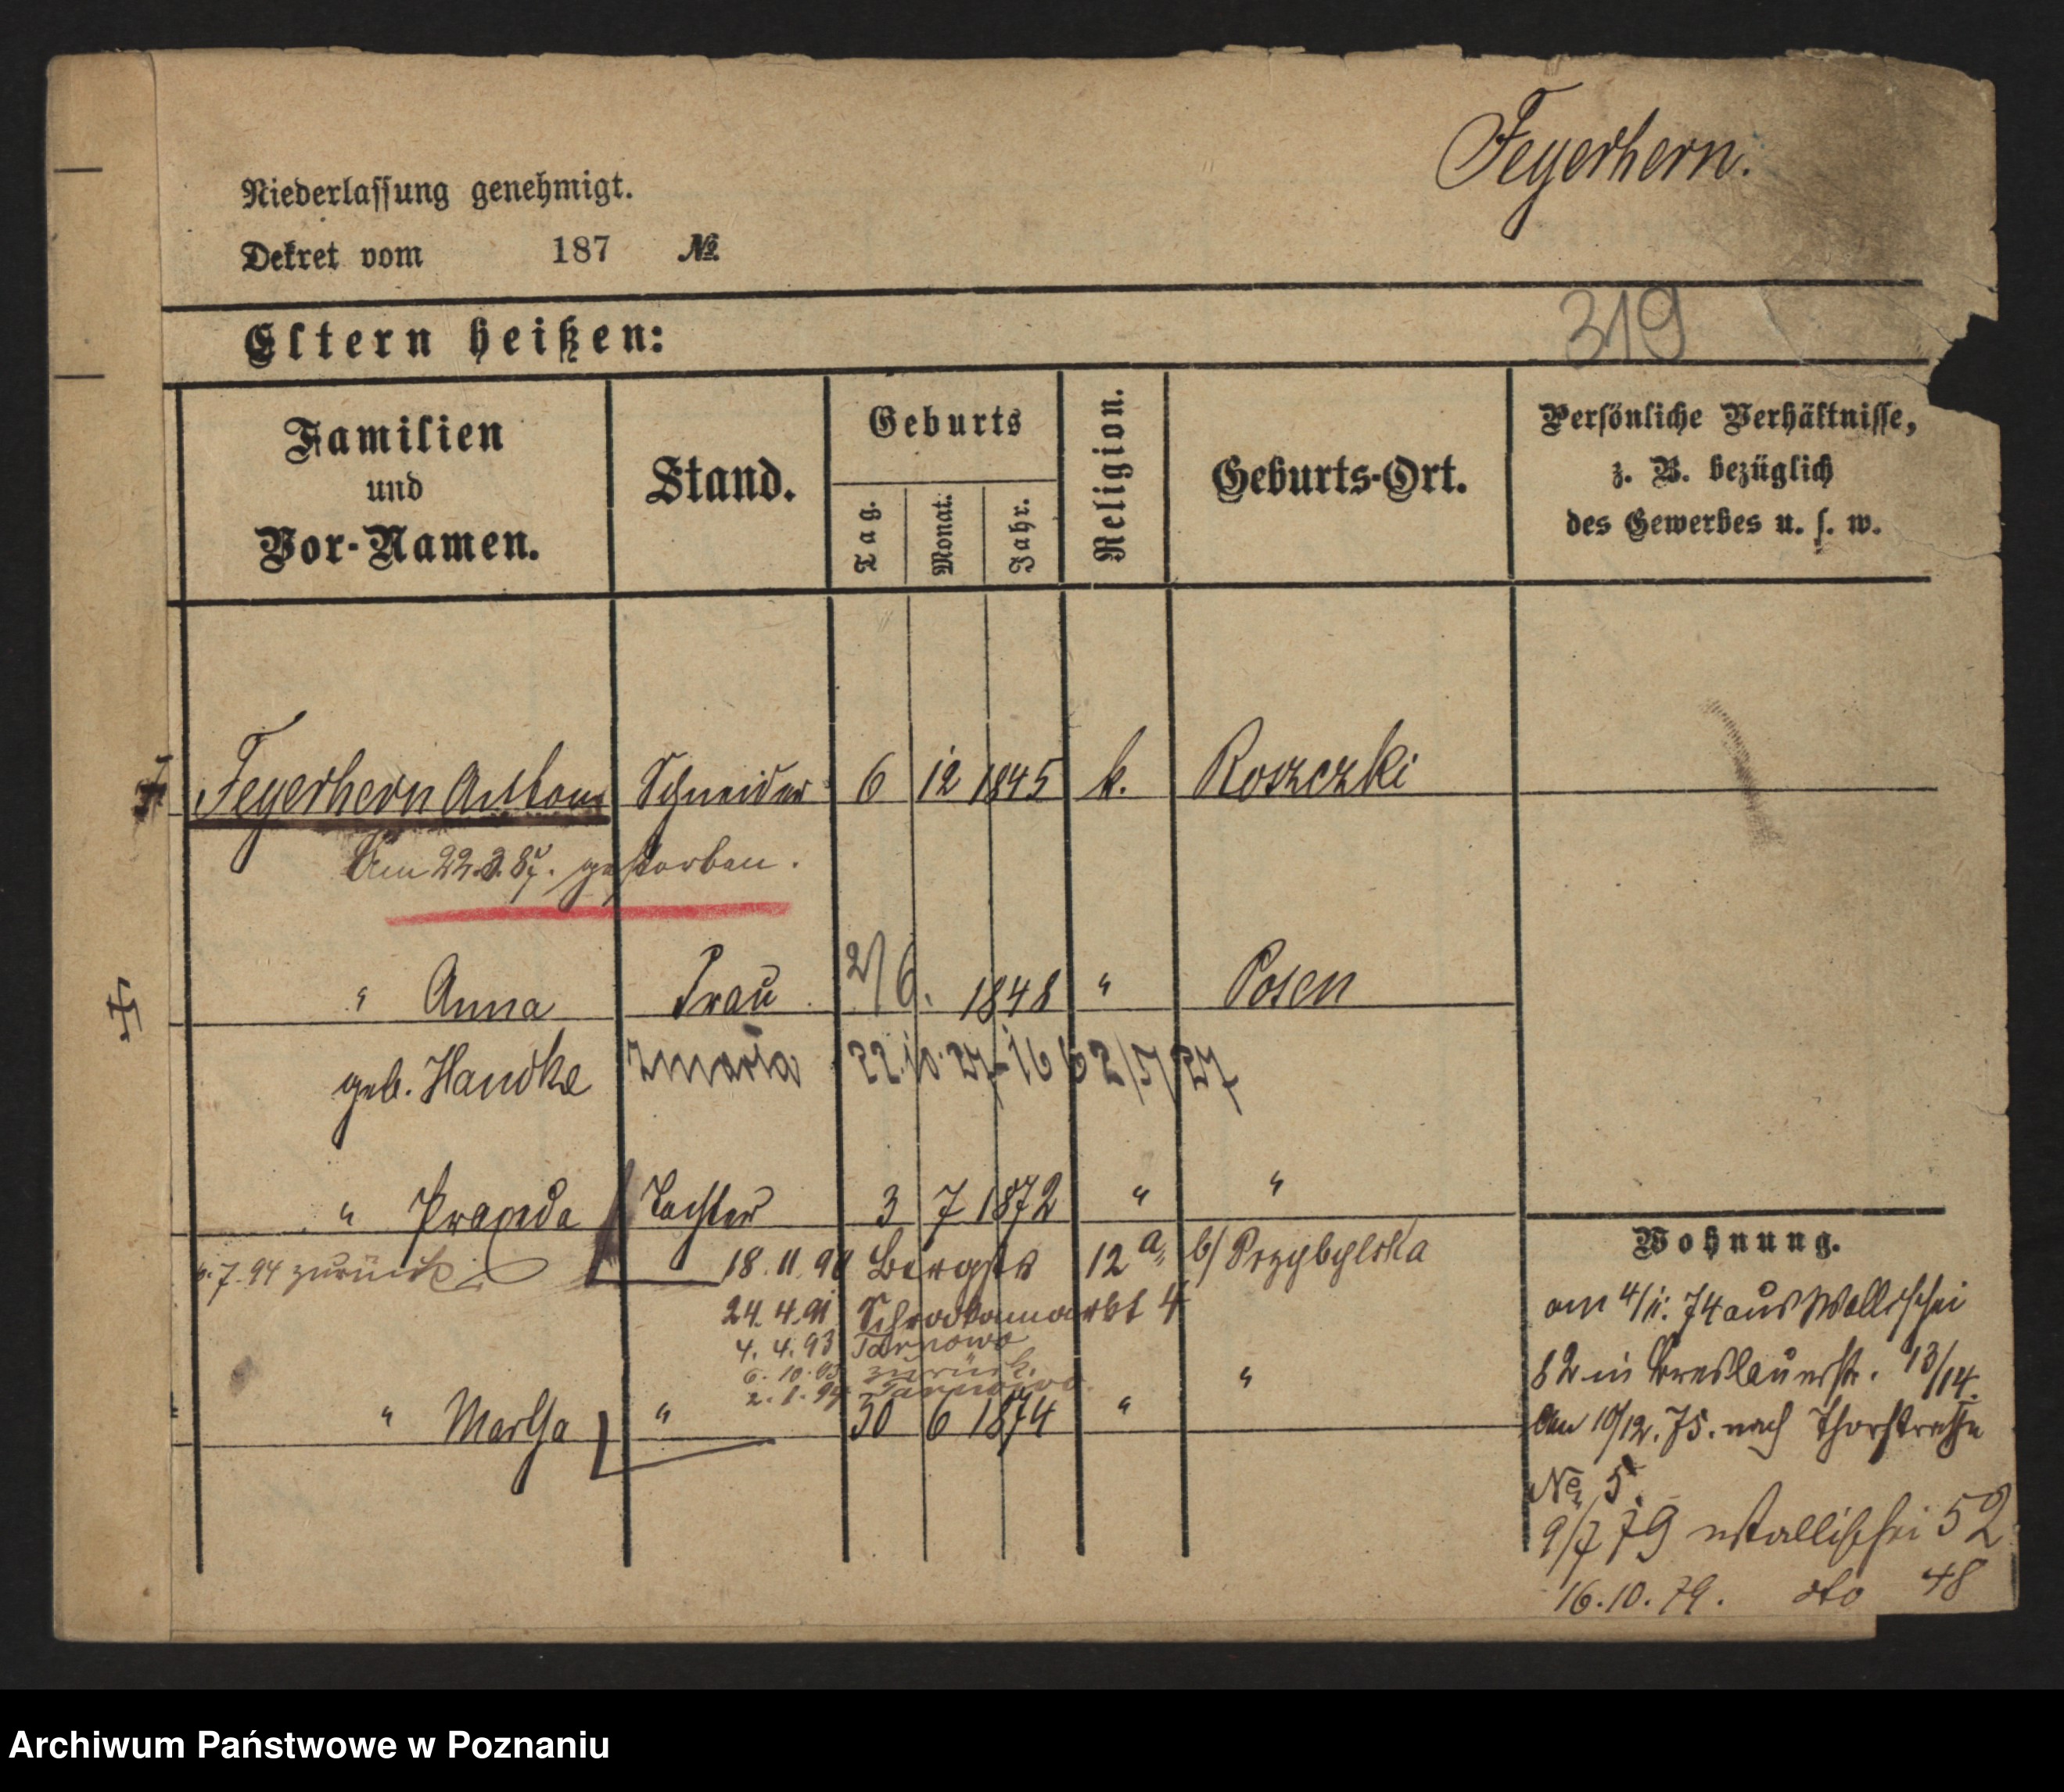 Feyerherm.
Niederlassung genehmigt.
Dekret vom 187 №
319
Eltern heißen:
Familien und Vor-Namen.
Stand.
Geburts
Tag.
Monat.
Jahr.
Religion.
Geburts-Ort.
Persönliche Verhältnisse,
z. B. bezüglich
des Gewerbes u. s. w.
Feyerherm Anton Schneider 6 12 1845 k. Roszczki
Am 22.3.87. gestorben.
" Anna Frau 2/6. 1848 " Posen
geb. Handke Maria 22.10.27 - 16
" Praxeda Tochter 3 7 1872 " "
7.94 zurück
18.11.90 Bergstr 12a, b/ Przybylska
24.4.91 Schrodkamarkt 4
4.4.93 Tarnowo
6.10.93 zurück.
2.1.94 Tarnowo
" Martha " 30 6 1874 " "
Wohnung.
am 4/11. 74 aus Wallischei
82 in Breslauerstr. 13/14.
Am 10/12. 75. nach Thorstraße
No 5.
9/7 79 Wallischei 52
16.10.79. dto 48
Archiwum Państwowe w Poznaniu